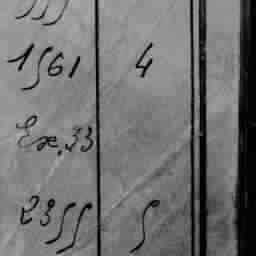 1561 4
Ex. 33
2355 5